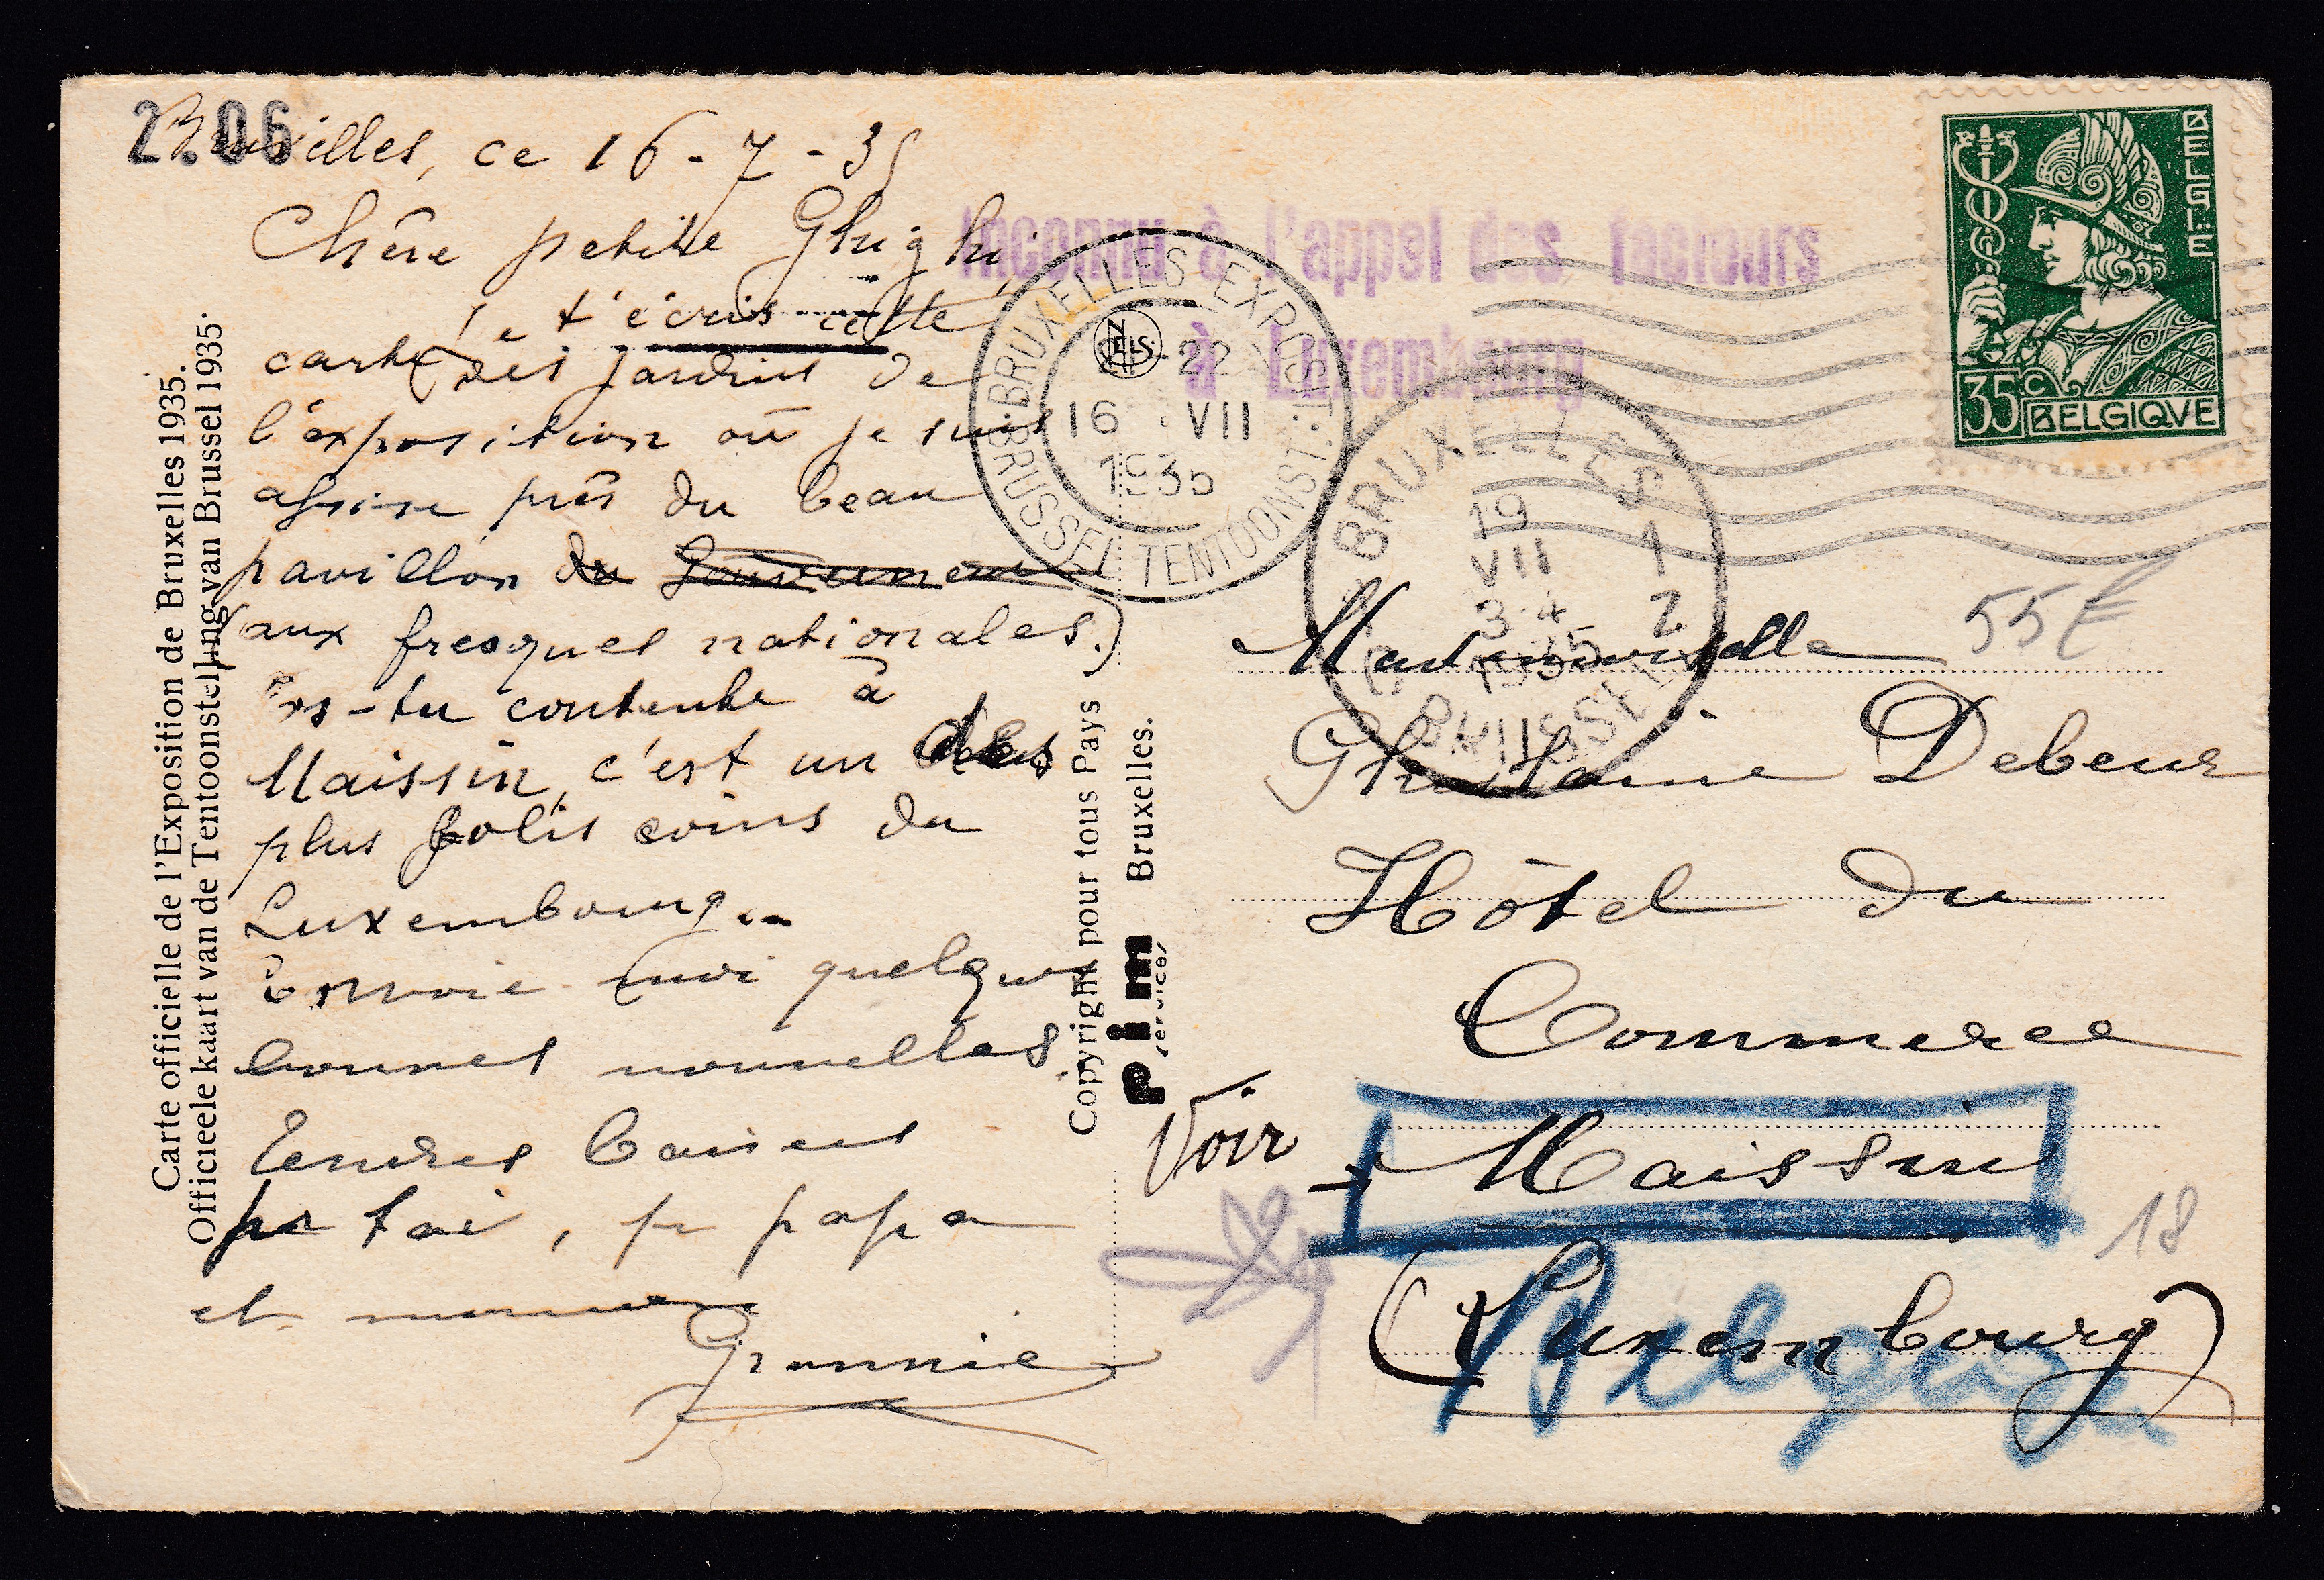 2.06
Bruxelles, ce 16-7-35
Chère petite Ghighi,
Je t'écris cette
carte des jardins de
l'exposition où je suis
assise près du beau
pavillon du Gouvernement
(aux fresques nationales.)
Es-tu contente à
Maissin, c'est un des
plus jolis coins du
Luxembourg..
Envoie-moi quelques
bonnes nouvelles
Tendres baisers
pr toi, pr papa
et maman
Grannie
Carte officielle de l'Exposition de Bruxelles 1935.
Officieele kaart van de Tentoonstelling van Brussel 1935.
Copyright pour tous Pays
pim services Bruxelles.
NELS.
Inconnu à l'appel des facteurs
à Luxembourg
BRUXELLES EXPOST.
-22
16 . VII
1935
BRUSSEL TENTOONST.
BRUXELLES
19
VII
3-4
1935
1
2
BRUSSEL
BELGIË
35c
BELGIQVE
55 €
Mademoiselle
Ghislaine Debeur
Hôtel du
Commerce
Voir
Maissin
18
(Luxembourg)
Belgique